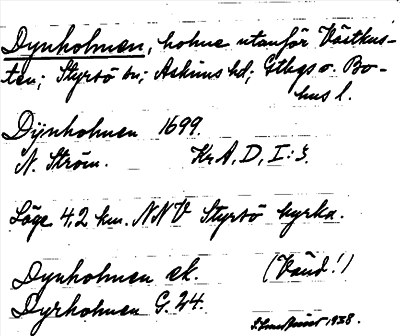 Dynholmen, holme utanför Västkus-
ten; Styrsö sn; Askims hd; Gtbgs o. Bo-
hus l.
Dÿnholmen 1699.
N. Ström. Kr A, D, I: 3.
Läge 4,2 km. NNV Styrsö kyrka.
Dynholmen ek. (Känd!)
Dyrholmen G. 24.
1938.